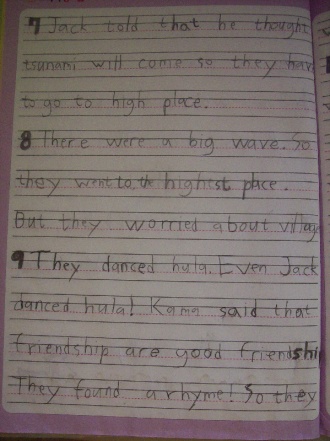 7 Jack told that he thought
tsunami will come so they have
to go to high place.
8 There were a big wave. So
they went to the highest place.
But they worried about village
9 They danced hula. Even Jack
danced hula! Kama said that
friendship are good friendship
They found a rhyme! So they